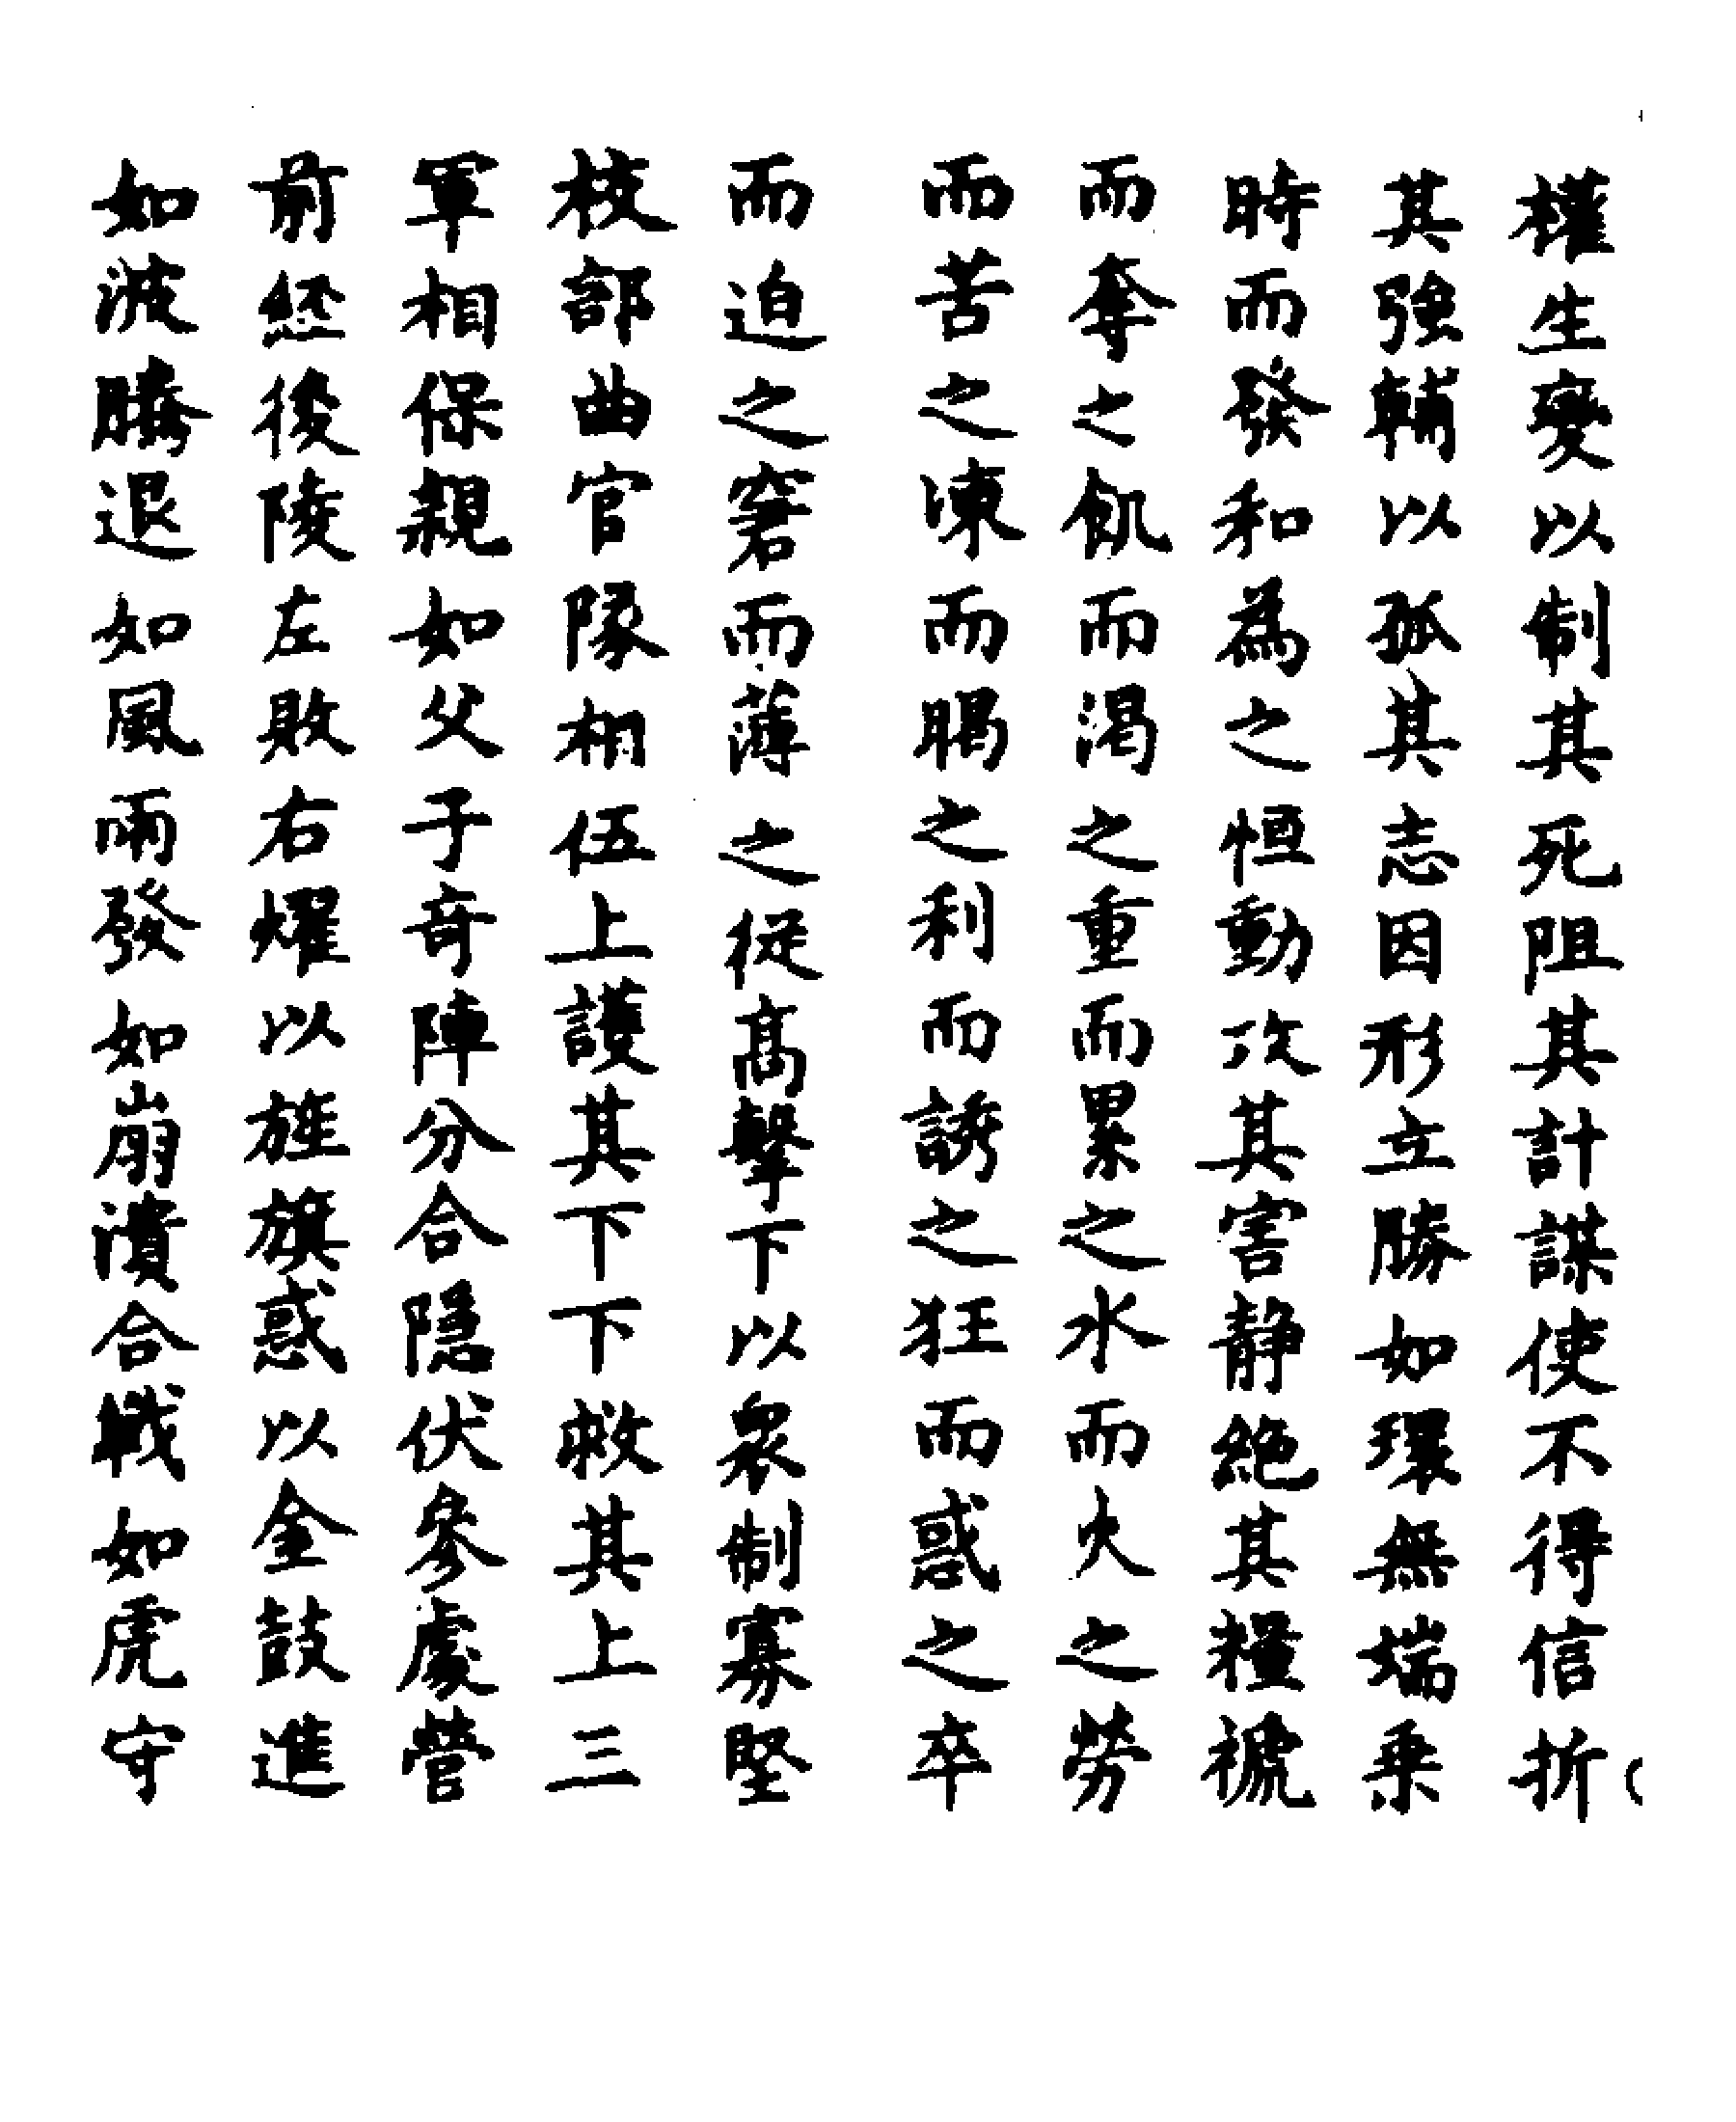 權生變以制其死阻其計謀使不得信折
其強輔以孤其志因形立勝如環無端乗
時而發和為之恒動攻其害静絶其糧褫
而奪之飢而渇之重而累之水而火之勞
而苦之凍而暍之利而誘之狂而惑之卒
而迫之窘而薄之從髙擊下以衆制寡堅
校部曲官隊相伍上護其下下救其上三
軍相保親如父子竒陣分合隠伏參處營
前経後陵左敗右燿以旌旗惑以金鼓進
如波騰退如風雨發如崩潰合戦如虎守